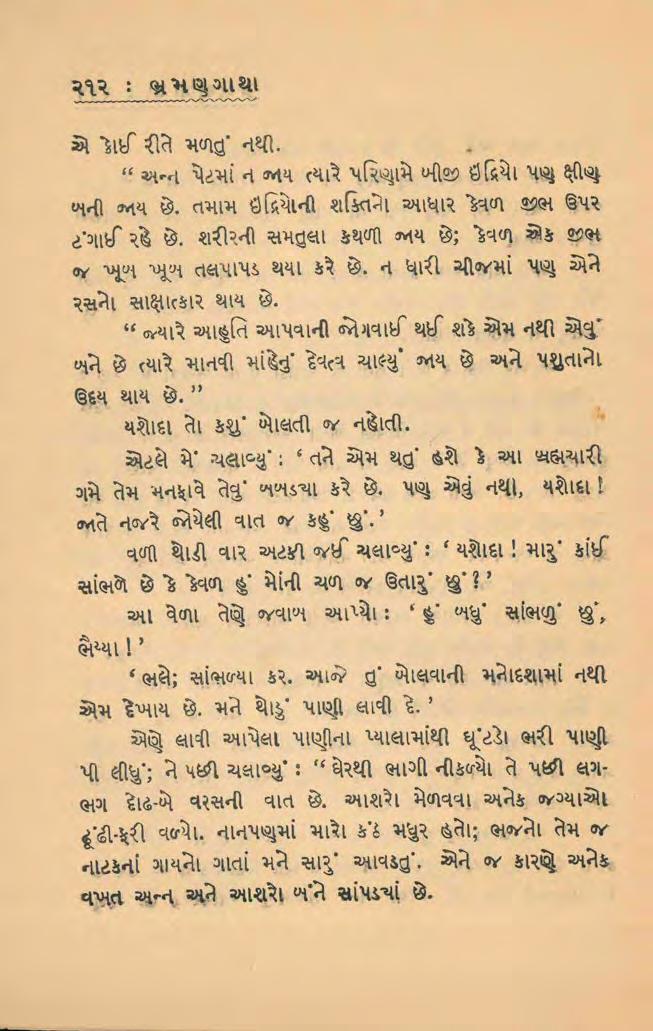 ૨૧૨ : ભ્રમણગાથા
એ કોઈ રીતે મળતું નથી.
“ અન્ન પેટમાં ન જાય ત્યારે પરિણામે બીજી ઇંદ્રિયો પણ ક્ષીણ
બની જાય છે. તમામ ઇંદ્રિયોની શક્તિનો આધાર કેવળ જીભ ઉપર
ટંગાઈ રહે છે. શરીરની સમતુલા કથળી જાય છે; કેવળ એક જીભ
જ ખૂબ ખૂબ તલપાપડ થયા કરે છે. ન ધારી ચીજમાં પણ એને
રસનો સાક્ષાત્કાર થાય છે.
“ જ્યારે આહુતિ આપવાની જોગવાઈ થઈ શકે એમ નથી એવું
બને છે ત્યારે માનવી માંહેનું દેવત્વ ચાલ્યું જાય છે અને પશુતાનો
ઉદય થાય છે.”
યશોદા તો કશું બોલતી જ નહોતી.
એટલે મેં ચલાવ્યું : ‘ તને એમ થતું હશે કે આ બ્રહ્મચારી
ગમે તેમ મનફાવે તેવું બબડ્યા કરે છે. પણ એવું નથી, યશોદા !
જાતે નજરે જોયેલી વાત જ કહું છું.’
વળી થોડી વાર અટકી જઈ ચલાવ્યું : ‘ યશોદા ! મારું કાંઈ
સાંભળે છે કે કેવળ હું મોંની ચળ જ ઉતારું છું ? ’
આ વેળા તેણે જવાબ આપ્યો : ‘ હું બધું સાંભળું છું,
ભૈય્યા ! ’
‘ ભલે; સાંભળ્યા કર. આજે તું બોલવાની મનોદશામાં નથી
એમ દેખાય છે. મને થોડું પાણી લાવી દે. ’
એણે લાવી આપેલા પાણીના પ્યાલામાંથી ઘૂંટડો ભરી પાણી
પી લીધું; ને પછી ચલાવ્યું : “ ઘેરથી ભાગી નીકળ્યો તે પછી લગ-
ભગ દોઢ-બે વરસની વાત છે. આશરો મેળવવા અનેક જગ્યાઓ
ઢૂંઢી-ફરી વળ્યો. નાનપણમાં મારો કંઠ મધુર હતો; ભજનો તેમ જ
નાટકનાં ગાયનો ગાતાં મને સારું આવડતું. એને જ કારણે અનેક
વખત અન્ન અને આશરો બંને સાંપડ્યાં છે.